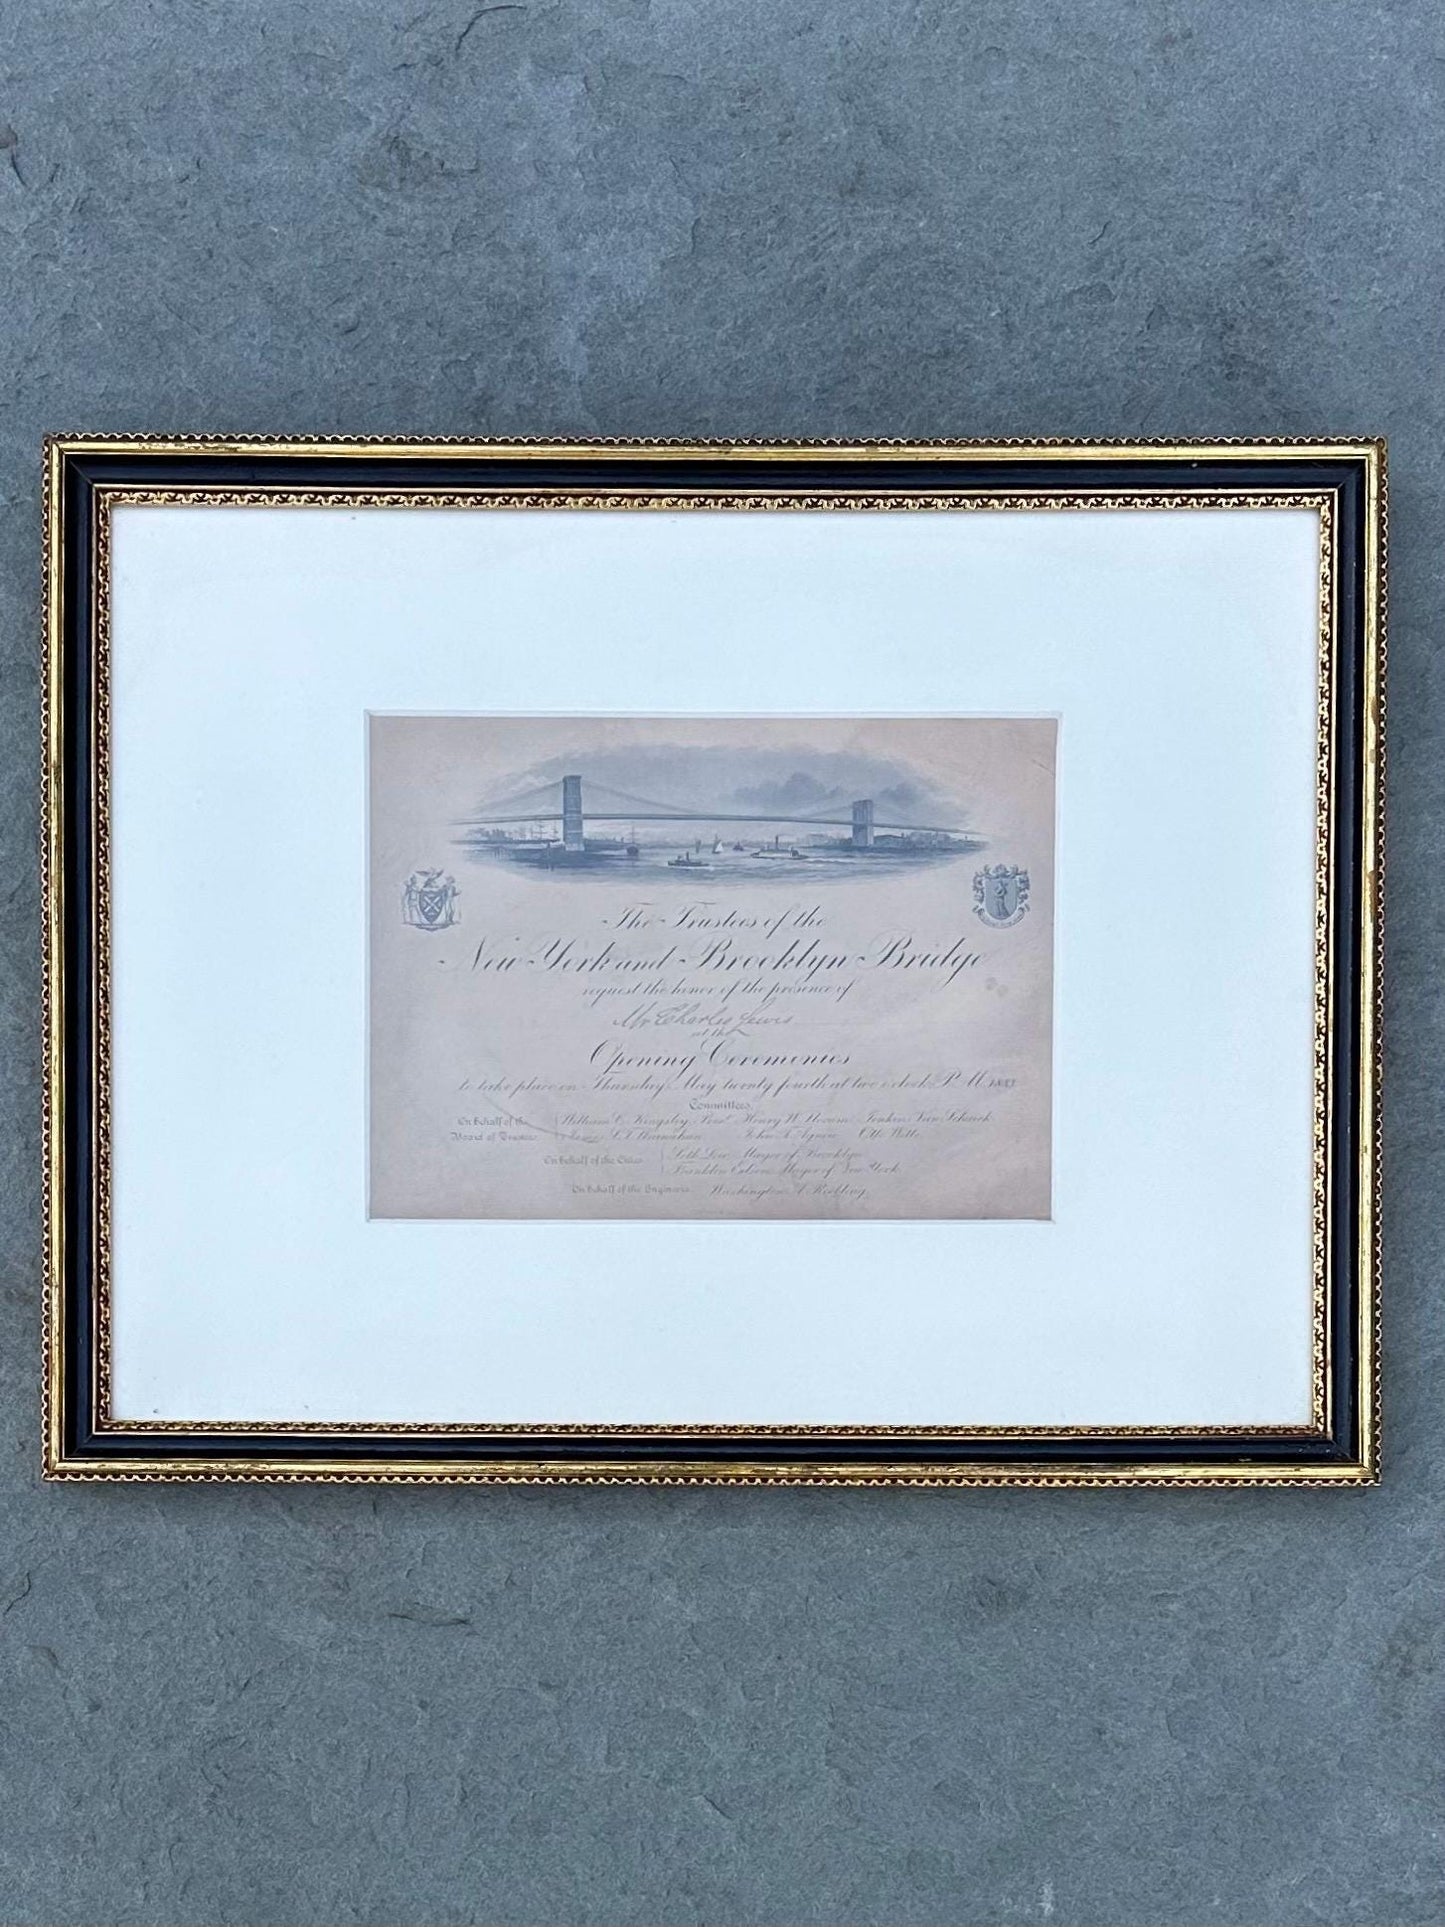 The Trustees of the
New York and Brooklyn Bridge
request the honor of the presence of
Mr Charles Lewis
at the
Opening Ceremonies
to take place on Thursday, May twenty fourth at two o'clock P. M. 1883
Committees,
On behalf of the Board of Trustees William C. Kingsley, Henry W. Slocum Jenkins Van Schaick
James S. T. Stranahan John T. Agnew Otto Witte
On behalf of the Cities Seth Low Mayor of Brooklyn
Franklin Edson Mayor of New York
On behalf of the Engineers Washington A. Roebling